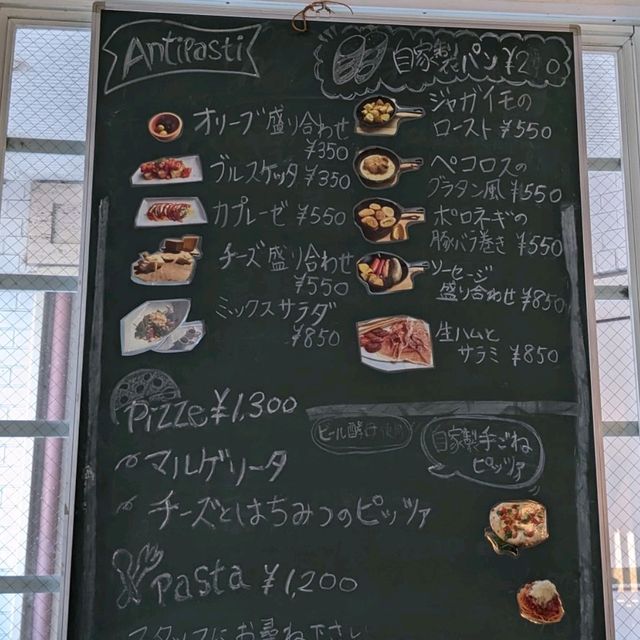 Antipasti
オリーブ盛り合わせ
¥350
ブルスケッタ ¥350
カプレーゼ ¥550
チーズ盛り合わせ
¥550
ミックスサラダ
¥850
自家製パン
ジャガイモの
ロースト ¥550
ペコロスの
グラタン風 ¥550
ポロネギの
豚バラ巻き ¥550
ソーセージ
盛り合わせ ¥850
生ハムと
サラミ ¥850
Pizze ¥1,300
マルゲリータ
チーズとはちみつのピッツァ
ビール酵母使用
自家製手ごね
ピッツァ
Pasta ¥1,200
スタッフにお尋ね下さい